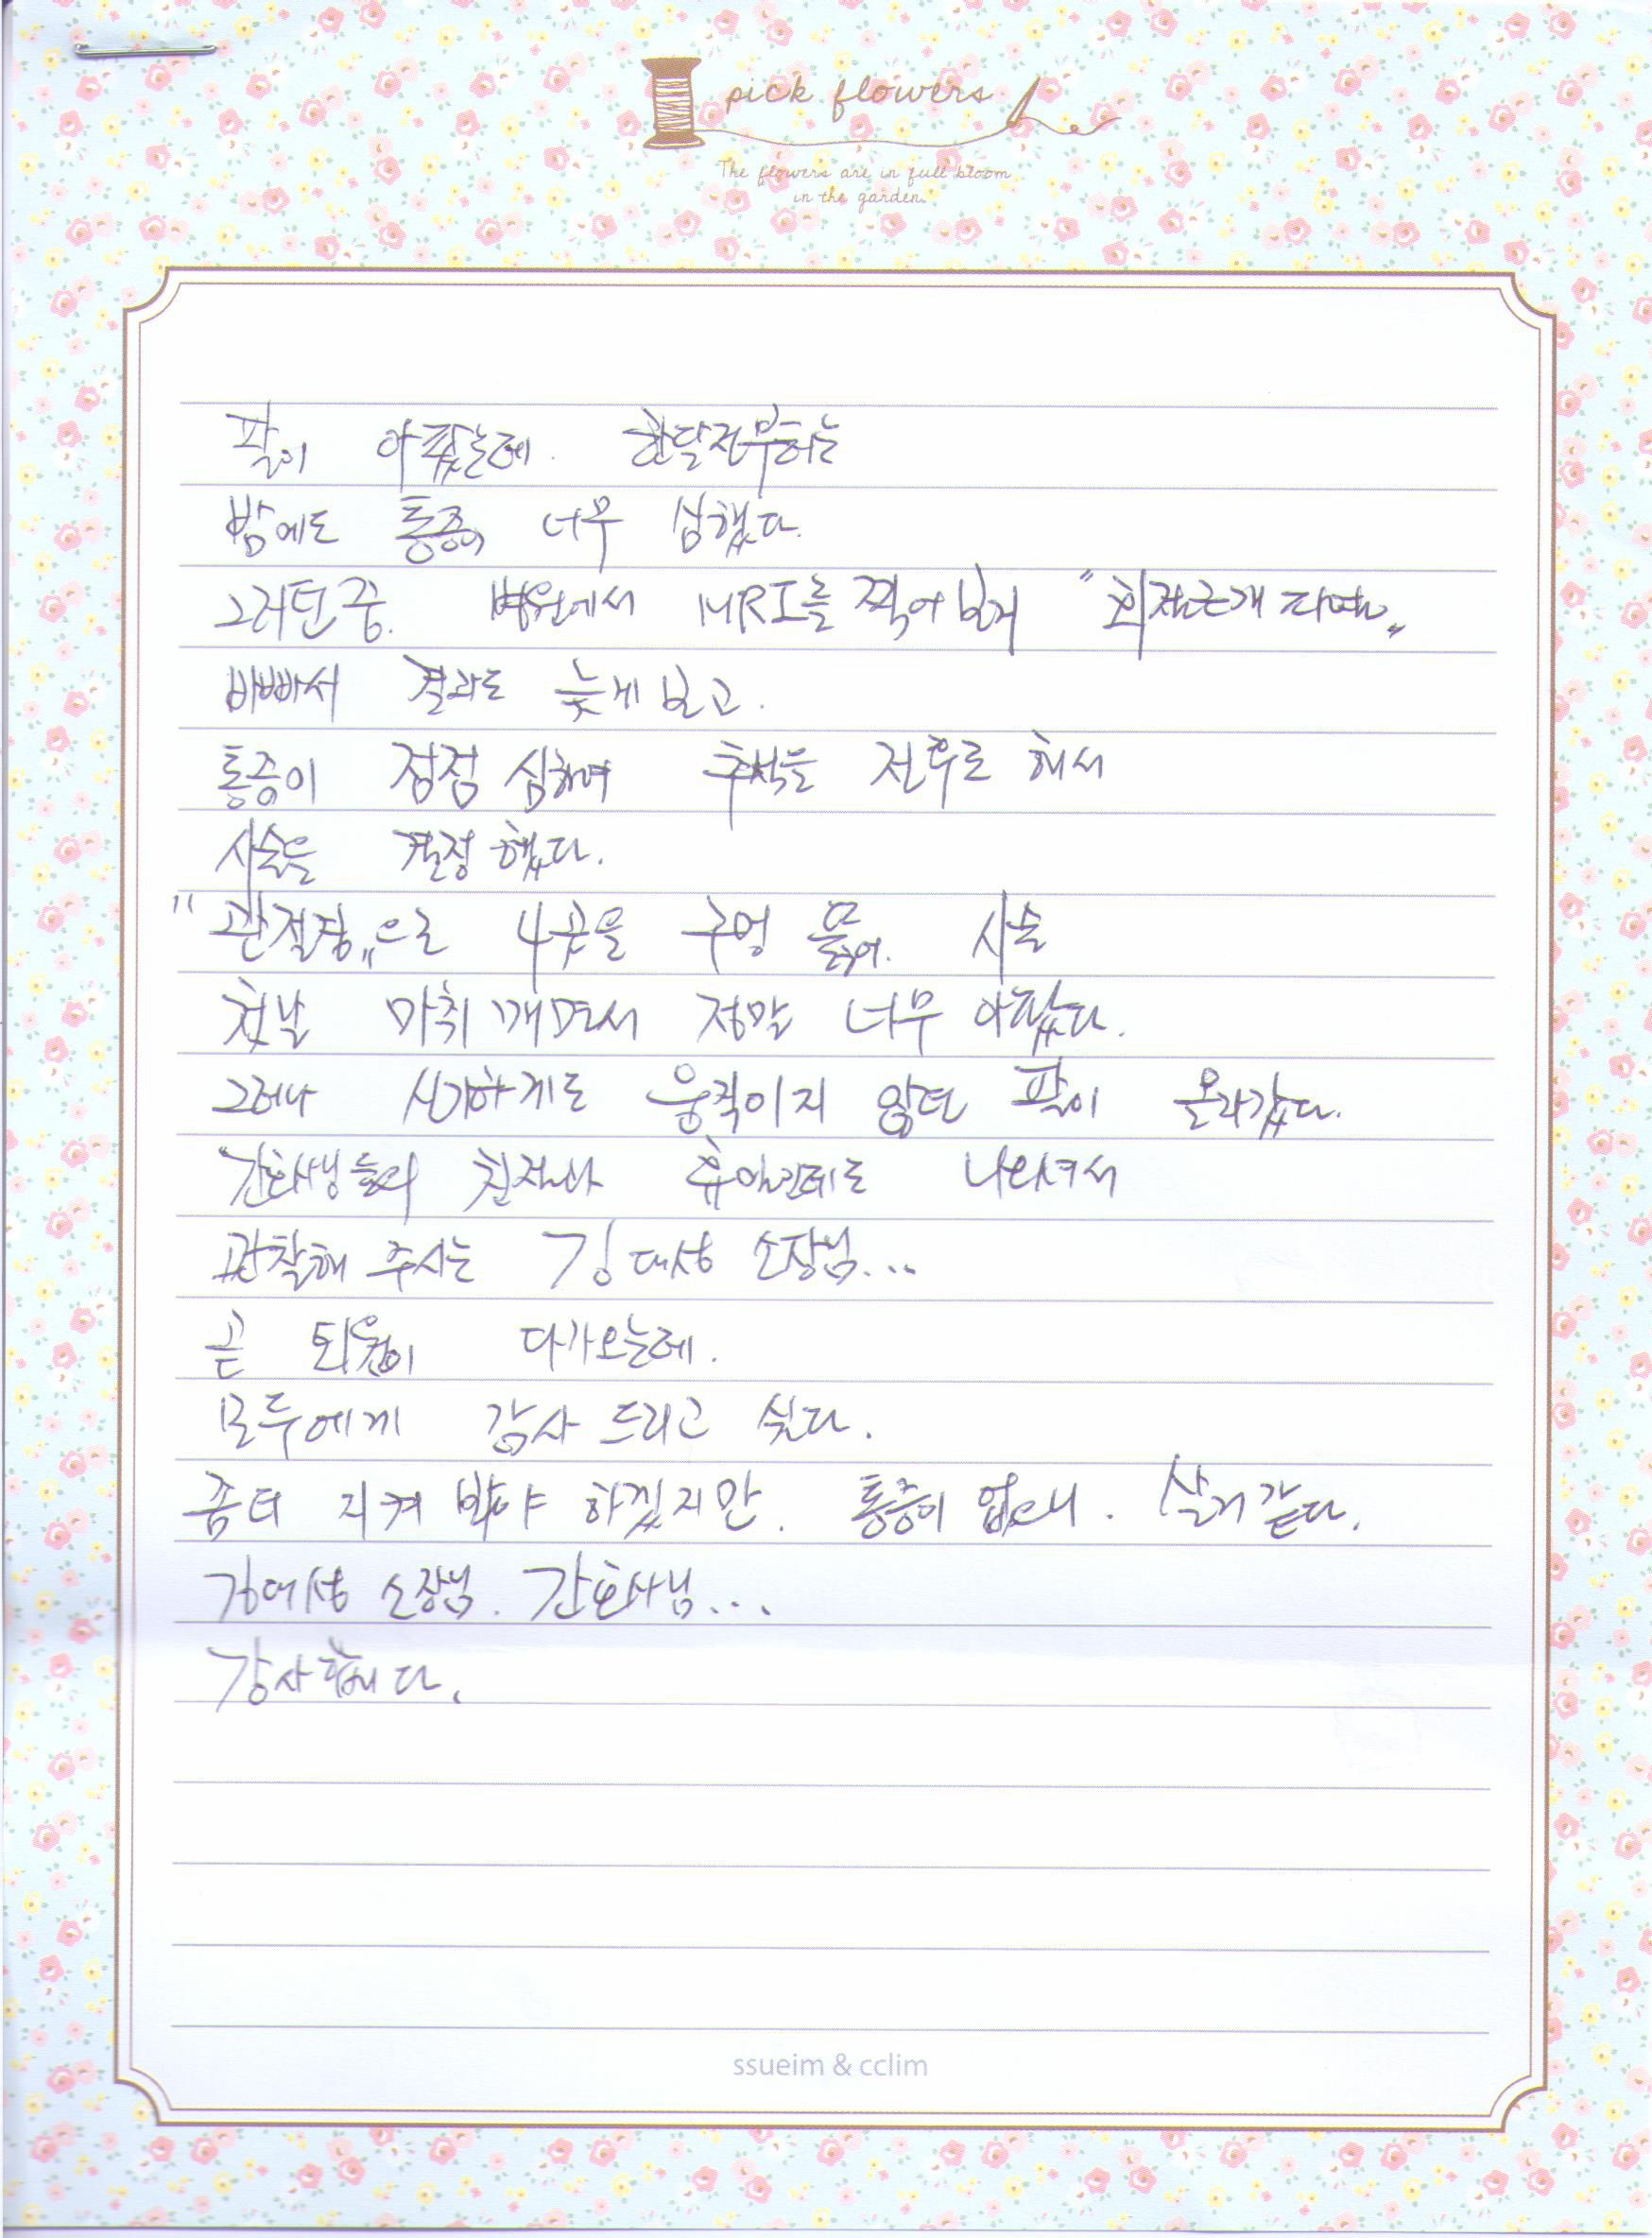 pick flowers
The flowers are in full bloom
in the garden.
팔이 아팠는데. 한달전부터는
밤에도 통증이 너무 심했다.
그러던중. 병원에서 MRI를 찍어보니 "회전근개 파열"
바빠서 결과도 늦게 보고.
통증이 점점 심하여 추석을 전후로 해서
시술을 결정했다.
"관절경"으로 4곳을 구멍 뚫어. 시술
첫날 마취 깨면서 정말 너무 아팠다.
그러나 신기하게도 움직이지 않던 팔이 올라갔다.
간호사님들의 친절과 휴일인데도 나와서
관찰해 주시는 김대성 소장님...
곧 퇴원이 다가오는데.
모두에게 감사 드리고 싶다.
좀더 지켜 봐야 하겠지만. 통증이 없으니. 살거 같다.
김대성 소장님. 간호사님...
감사합니다.
ssueim & cclim